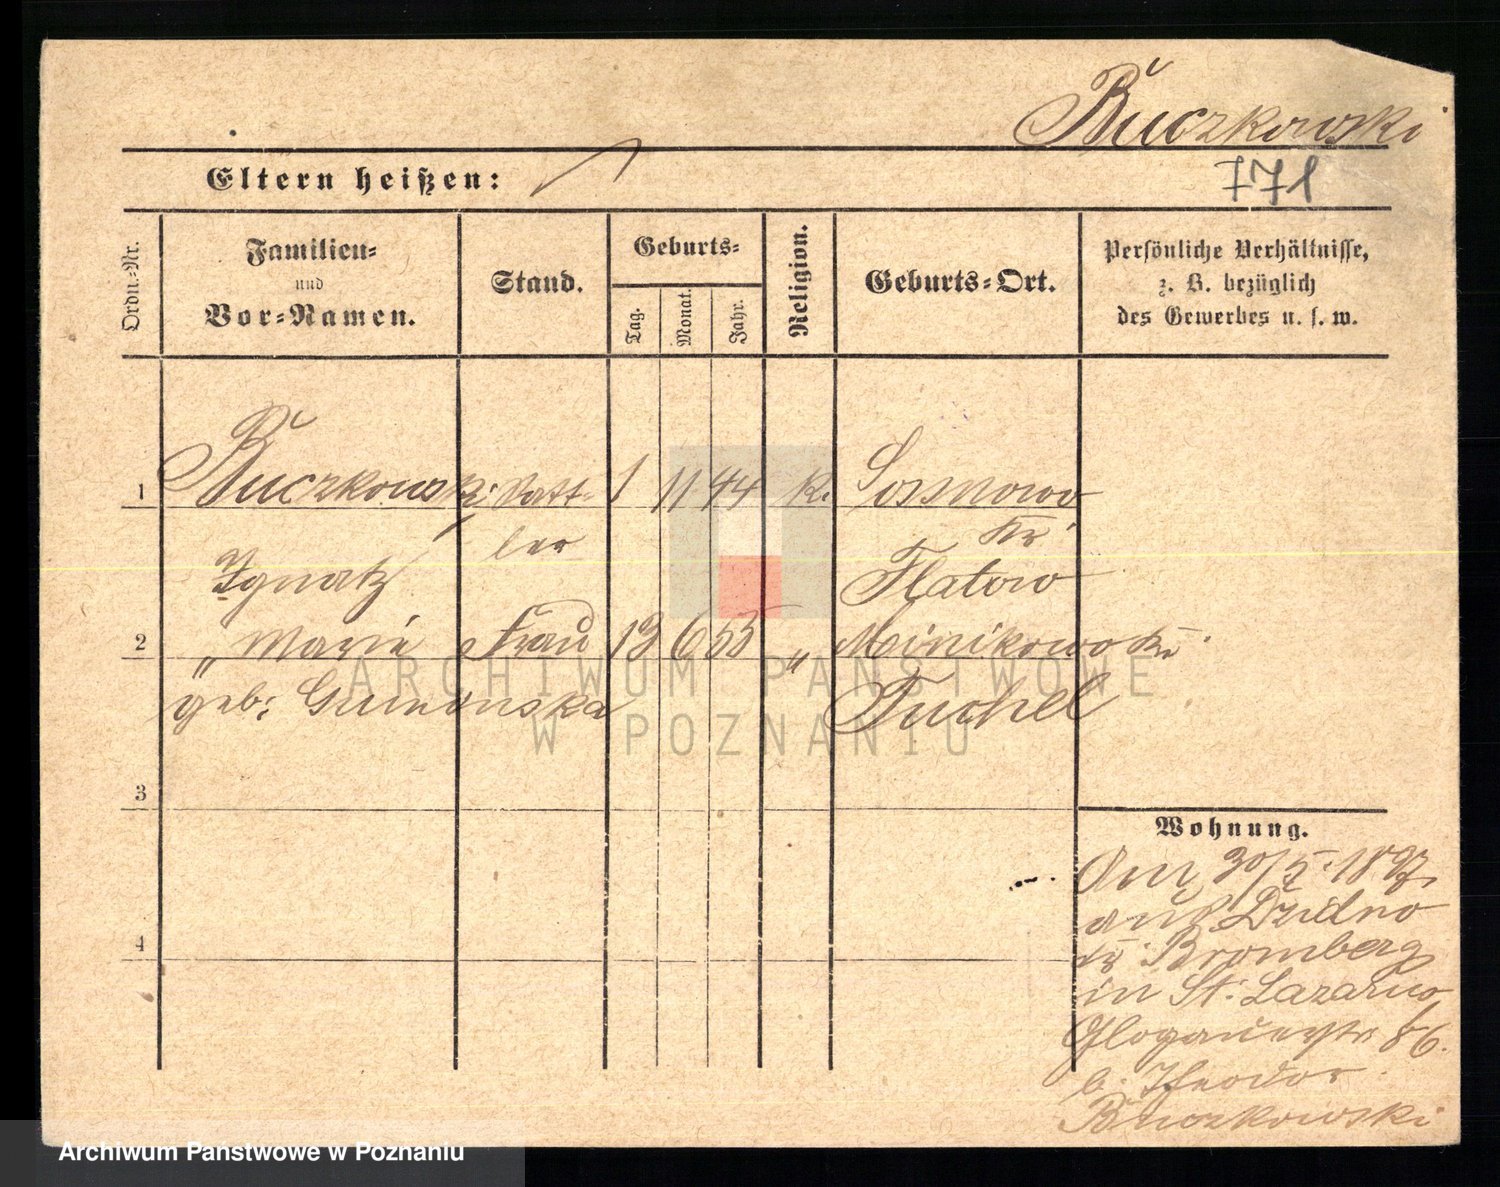 Buczkowski
771
Eltern heißen:
Ordn.-Nr.
Familien-
und
Vor-Namen.
Stand.
Geburts-
Tag.
Monat.
Jahr.
Religion.
Geburts-Ort.
Persönliche Verhältnisse,
z. B. bezüglich
des Gewerbes u. s. w.
1 Buczkowski Satt- 1 11 44 k. Sosnowo
ler Kr.
Ignatz Flatow
2 " Marie Frau 13 6 55 " Minikowo Kr.
geb: Tuchel
3
4
Wohnung.
Am 30/5. 1897
aus Dzidno
Kr. Bromberg
in St. Lazarus
Glogauerstr 86.
b. Theodor
Buczkowski
ARCHIWUM PAŃSTWOWE
W POZNANIU
Archiwum Państwowe w Poznaniu